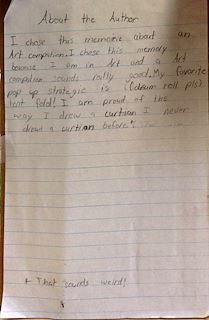 About the Author
I chose this memorie about an
Art compation. I chose this memory
becouse I am in Art and a Art
compation sounds really good. My favorite
pop up strategie is (drum roll pls)
tent fold! I am proud of the
way I drew a curtian I never
drew a curtian before*
* That sounds weird!